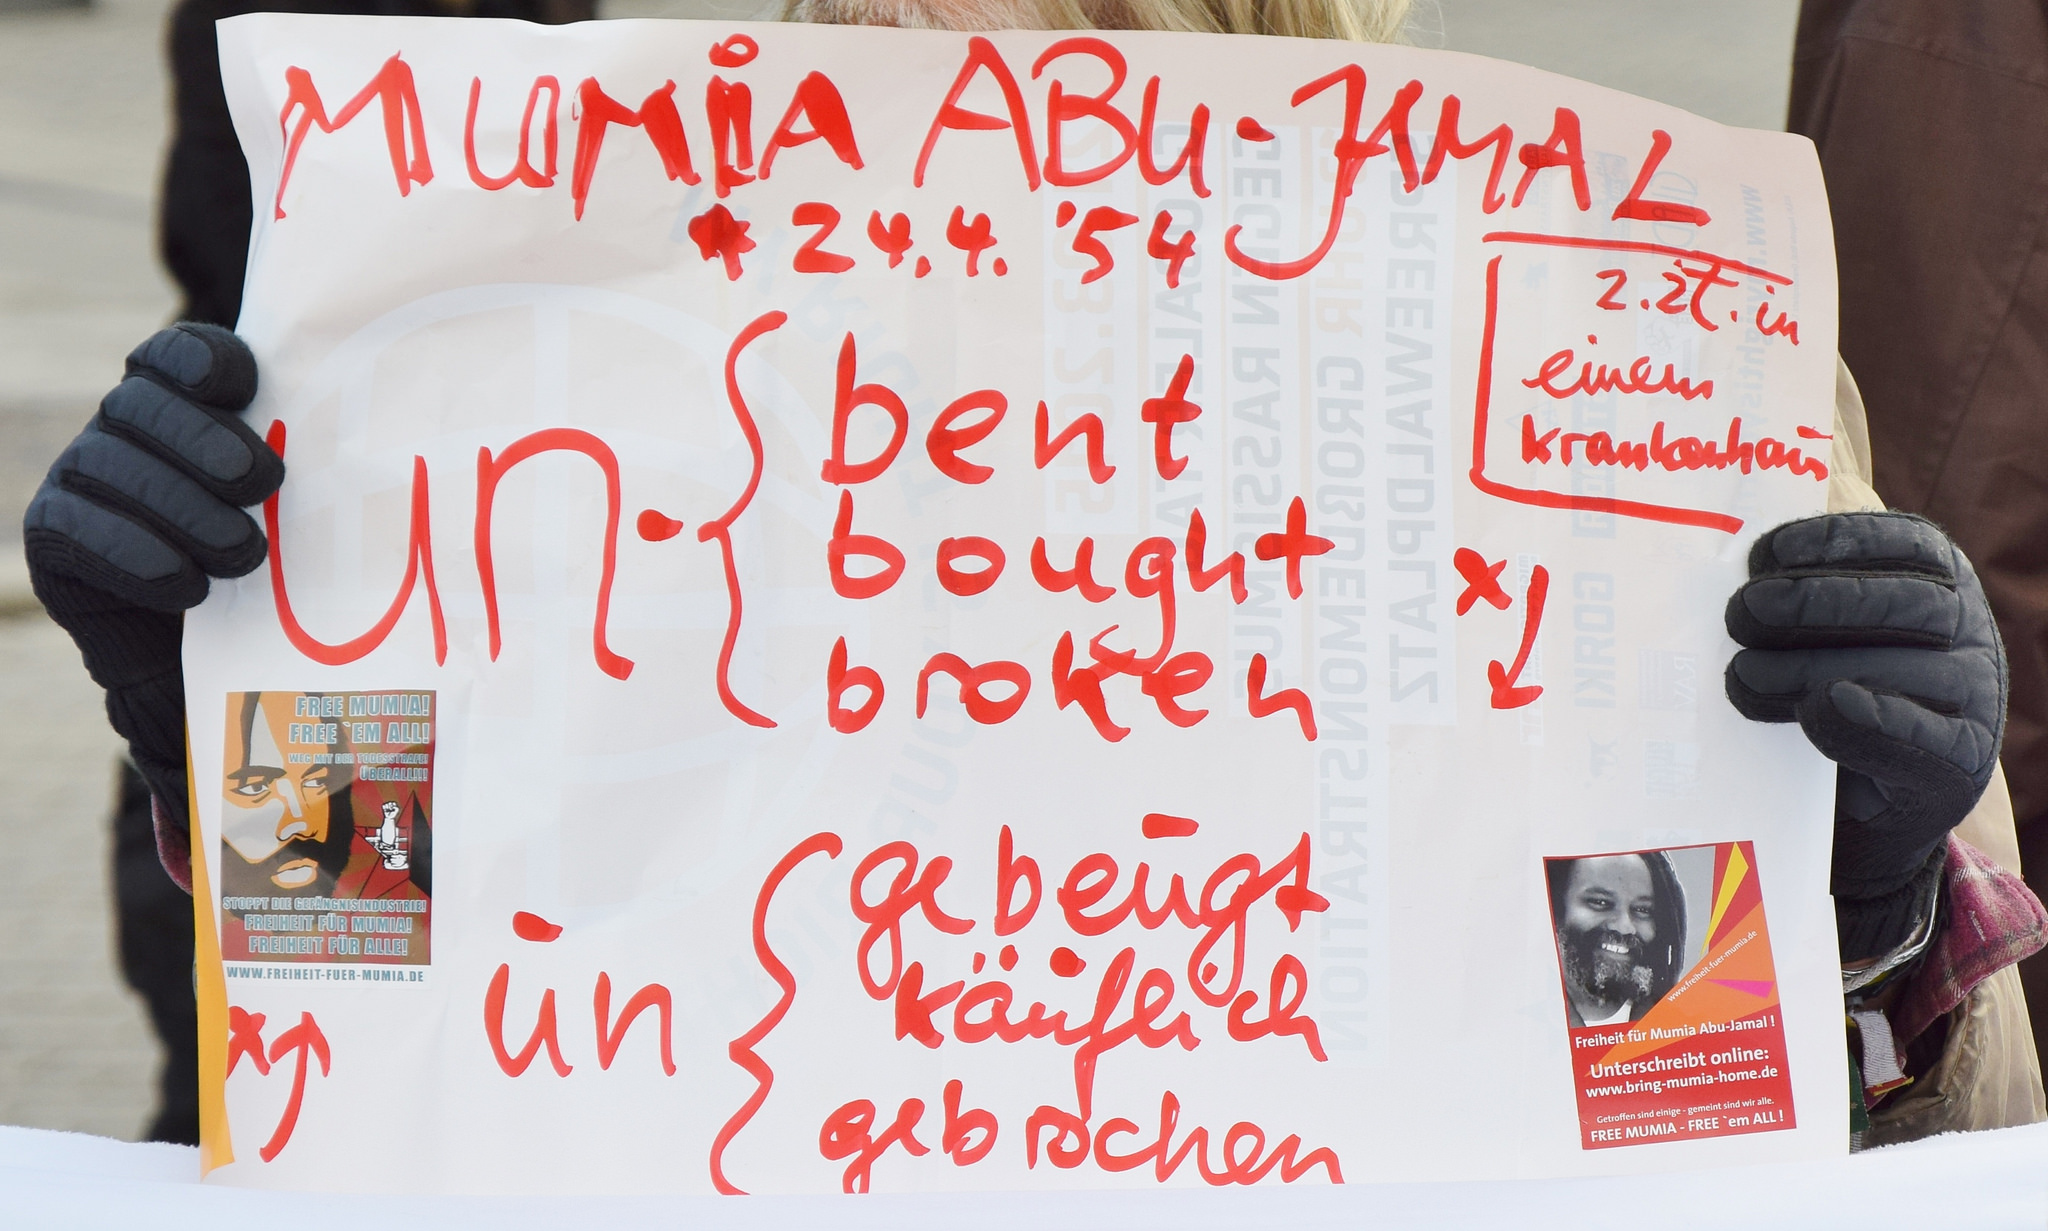 MUMiA ABU-JAMAL
* 24.4. '54
z.Zt. in
einem
Krankenhaus
un-
bent
bought
broken
x
FREE MUMIA!
FREE `EM ALL!
WEG MIT DER TODESSTRAFE!
ÜBERALL!!!
STOPPT DIE GEFÄNGNISINDUSTRIE!
FREIHEIT FÜR MUMIA!
FREIHEIT FÜR ALLE!
WWW.FREIHEIT-FUER-MUMIA.DE
x
un
gebeugt
käuflich
gebrochen
www.freiheit-fuer-mumia.de
Freiheit für Mumia Abu-Jamal !
Unterschreibt online:
www.bring-mumia-home.de
Getroffen sind einige - gemeint sind wir alle.
FREE MUMIA - FREE `em ALL !
SPREEWALDPLATZ
UHR GROßDEMONSTRATION
GEGEN RASSISMUS
GORKI